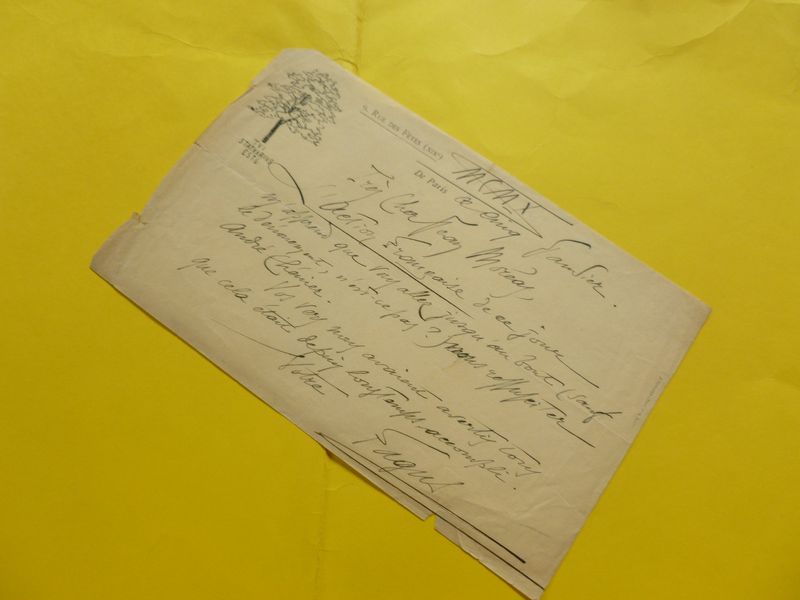 5, RUE DES FÊTES (XIXe)
MCMX
De Paris ce cinq Janvier.
Très Cher Jean Moréas,
L'Action Française de ce jour
m'apprend que vous allez jusqu'au bout (sauf
le dénouement, n'est-ce pas ?) nous
André Chénier.
Vos vers nous avaient avertis tous
que cela était depuis longtemps accompli.
Votre
Fagus